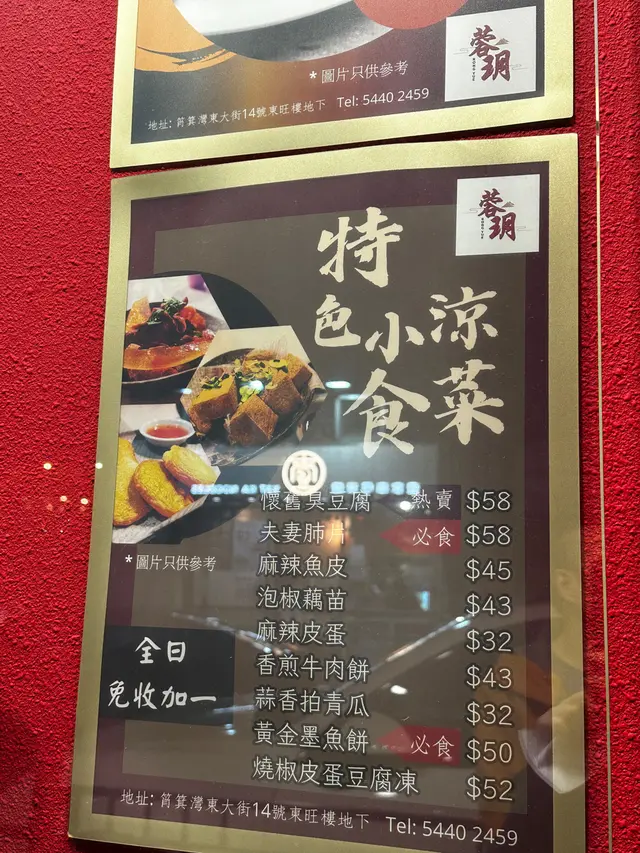 * 圖片只供參考
蓉玥
地址: 筲箕灣東大街14號東旺樓地下 Tel: 5440 2459
蓉玥
特色小食
涼菜
懷舊臭豆腐 熱賣 $58
夫妻肺片 必食 $58
麻辣魚皮 $45
泡椒藕苗 $43
麻辣皮蛋 $32
香煎牛肉餅 $43
蒜香拍青瓜 $32
黃金墨魚餅 必食 $50
燒椒皮蛋豆腐凍 $52
* 圖片只供參考
全日
免收加一
地址: 筲箕灣東大街14號東旺樓地下 Tel: 5440 2459